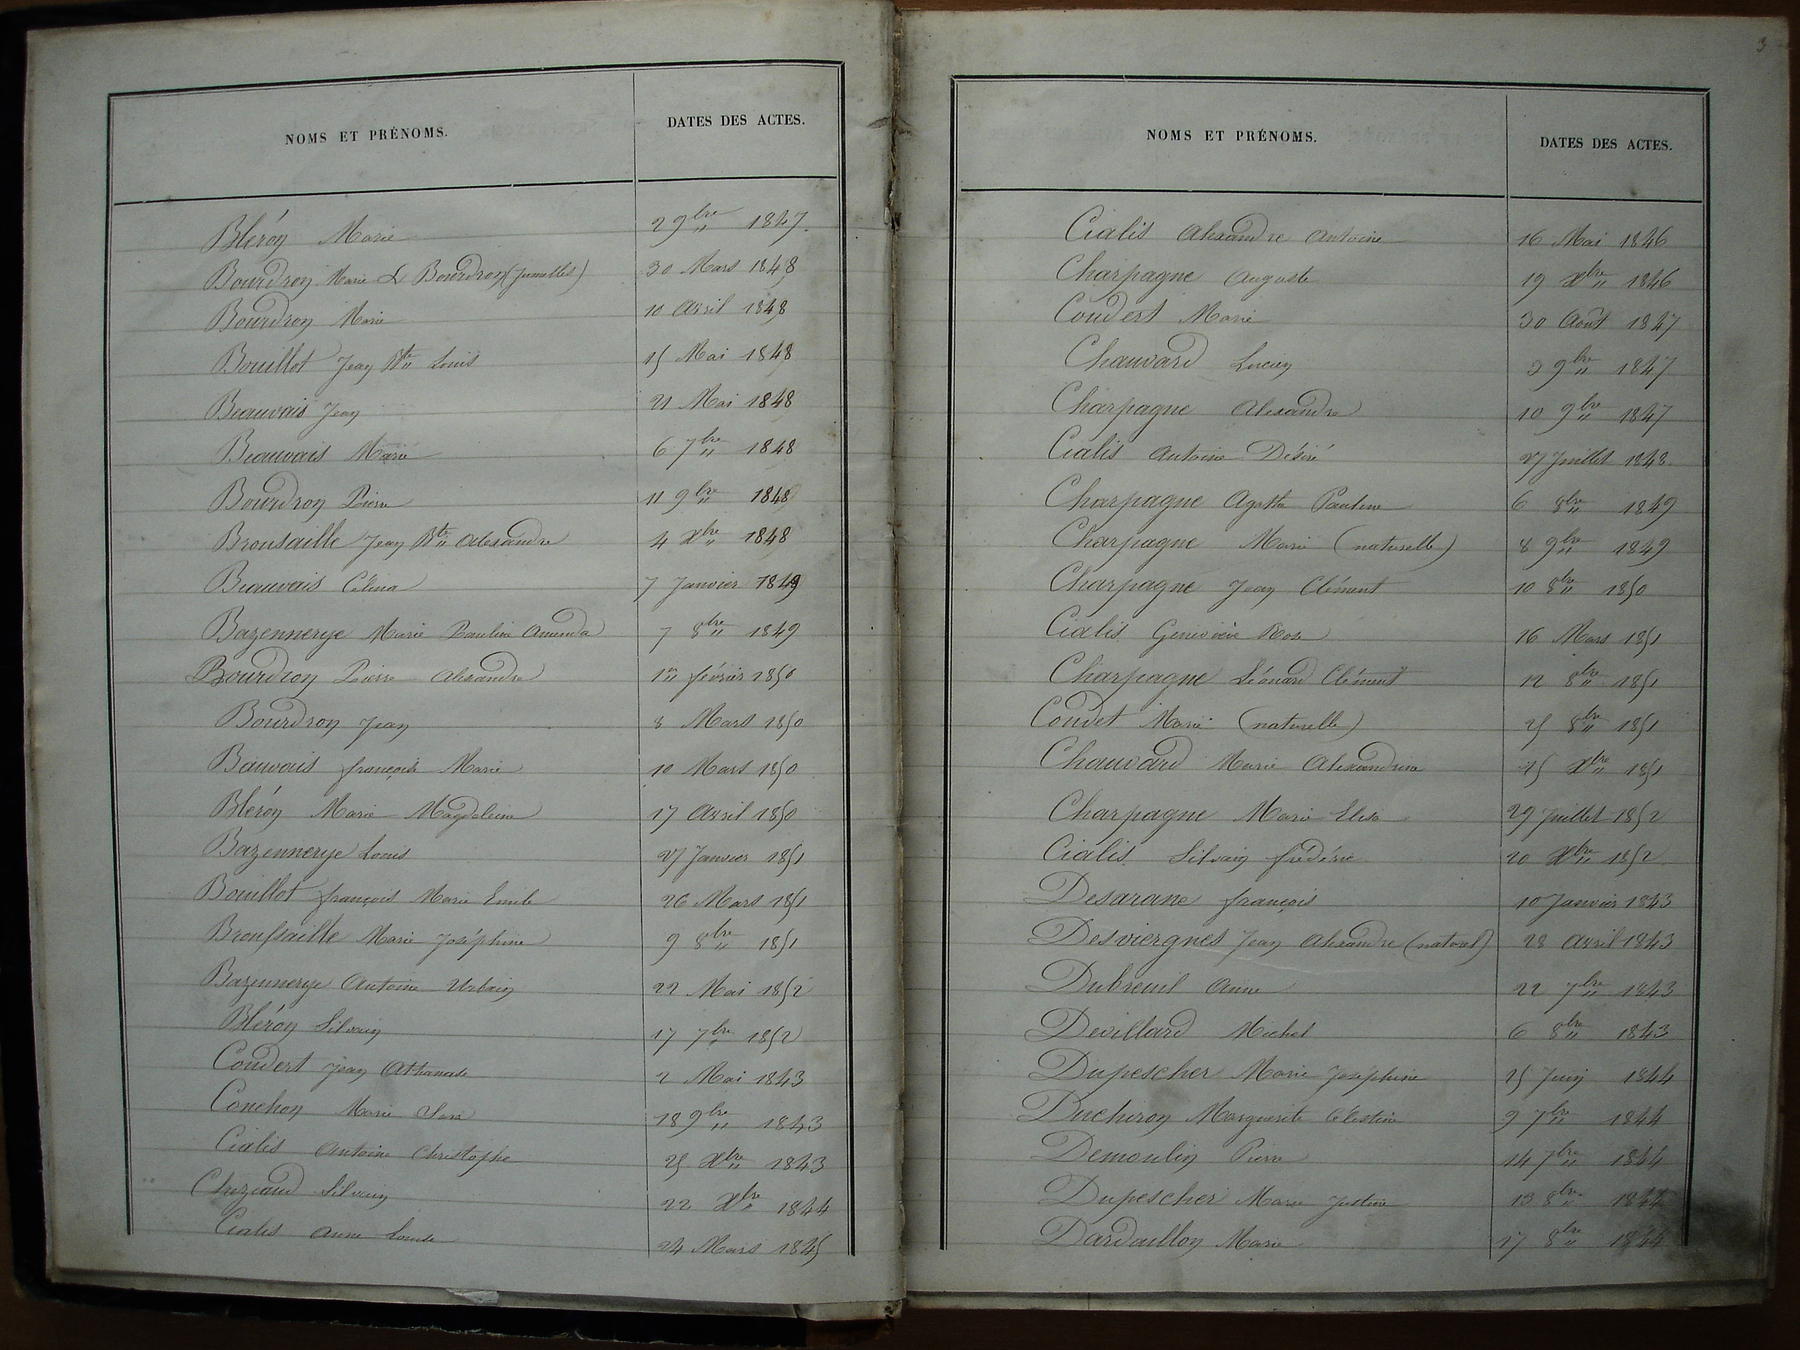 NOMS ET PRÉNOMS. DATES DES ACTES.
Bléron Marie 29bre 1847.
Bourdron Marie & Bourdron (Jumelles) 30 Mars 1848
Bourdron Marie 10 Avril 1848
Bouillot Jean Bte Louis 15 Mai 1848
Beauvais Jean 21 Mai 1848
Beauvais Marie 6 7bre 1848
Bourdron Pierre 11 9bre 1848
Broussaille Jean Bte Alexandre 4 Xbre 1848
Beauvais Célina 7 Janvier 1849
Bazennerye Marie Pauline Amanda 7 8bre 1849
Bourdron Pierre Alexandre 1er février 1850
Bourdron Jean 8 Mars 1850
Bauvais françois Marie 10 Mars 1850
Bléron Marie Magdeleine 17 Avril 1850
Bazennerye Louis 27 Janvier 1851
Bouillot françois Marie Emile 26 Mars 1851
Broussaille Marie Joséphine 9 8bre 1851
Bazennerye Antoine Urbain 22 Mai 1852
Bléron Silvain 17 7bre 1852
Coudert Jean Athanase 2 Mai 1843
Conchon Marie 18 9bre 1843
Cialis Antoine Christophe 25 Xbre 1843
Chezeaud Silvain 22 Xbre 1844
Cialis Anne Louise 24 Mars 1845
3
NOMS ET PRÉNOMS. DATES DES ACTES.
Cialis Alexandre Antoine 16 Mai 1846
Charpagne Auguste 19 Xbre 1846
Coudert Marie 30 Août 1847
Chauvard Lucien 3 9bre 1847
Charpagne Alexandre 10 9bre 1847
Cialis Antoine Désiré 27 Juillet 1848.
Charpagne Agathe Pauline 6 8bre 1849
Charpagne Marie (naturelle) 8 9bre 1849
Charpagne Jean Clément 10 8bre 1850
Cialis Geneviève Rose 16 Mars 1851
Charpagne Léonard Clément 12 8bre 1851
Coudet Marie (naturelle) 25 8bre 1851
Chauvard Marie Alexandrine 25 Xbre 1851
Charpagne Marie Elisa 29 Juillet 1852
Cialis Silvain frédéric 20 Xbre 1852
Desarane françois 10 Janvier 1843
Desviergnes Jean Alexandre (naturel) 28 Avril 1843
Dubreuil Anne 22 7bre 1843
Devillard Michel 6 8bre 1843
Dupescher Marie Joséphine 25 Juin 1844
Duchiron Marguerite Célestine 9 7bre 1844
Demoulin Pierre 14 7bre 1844
Dupescher Marie Justine 13 8bre 1844
Dardaillon Marie 17 8bre 1844